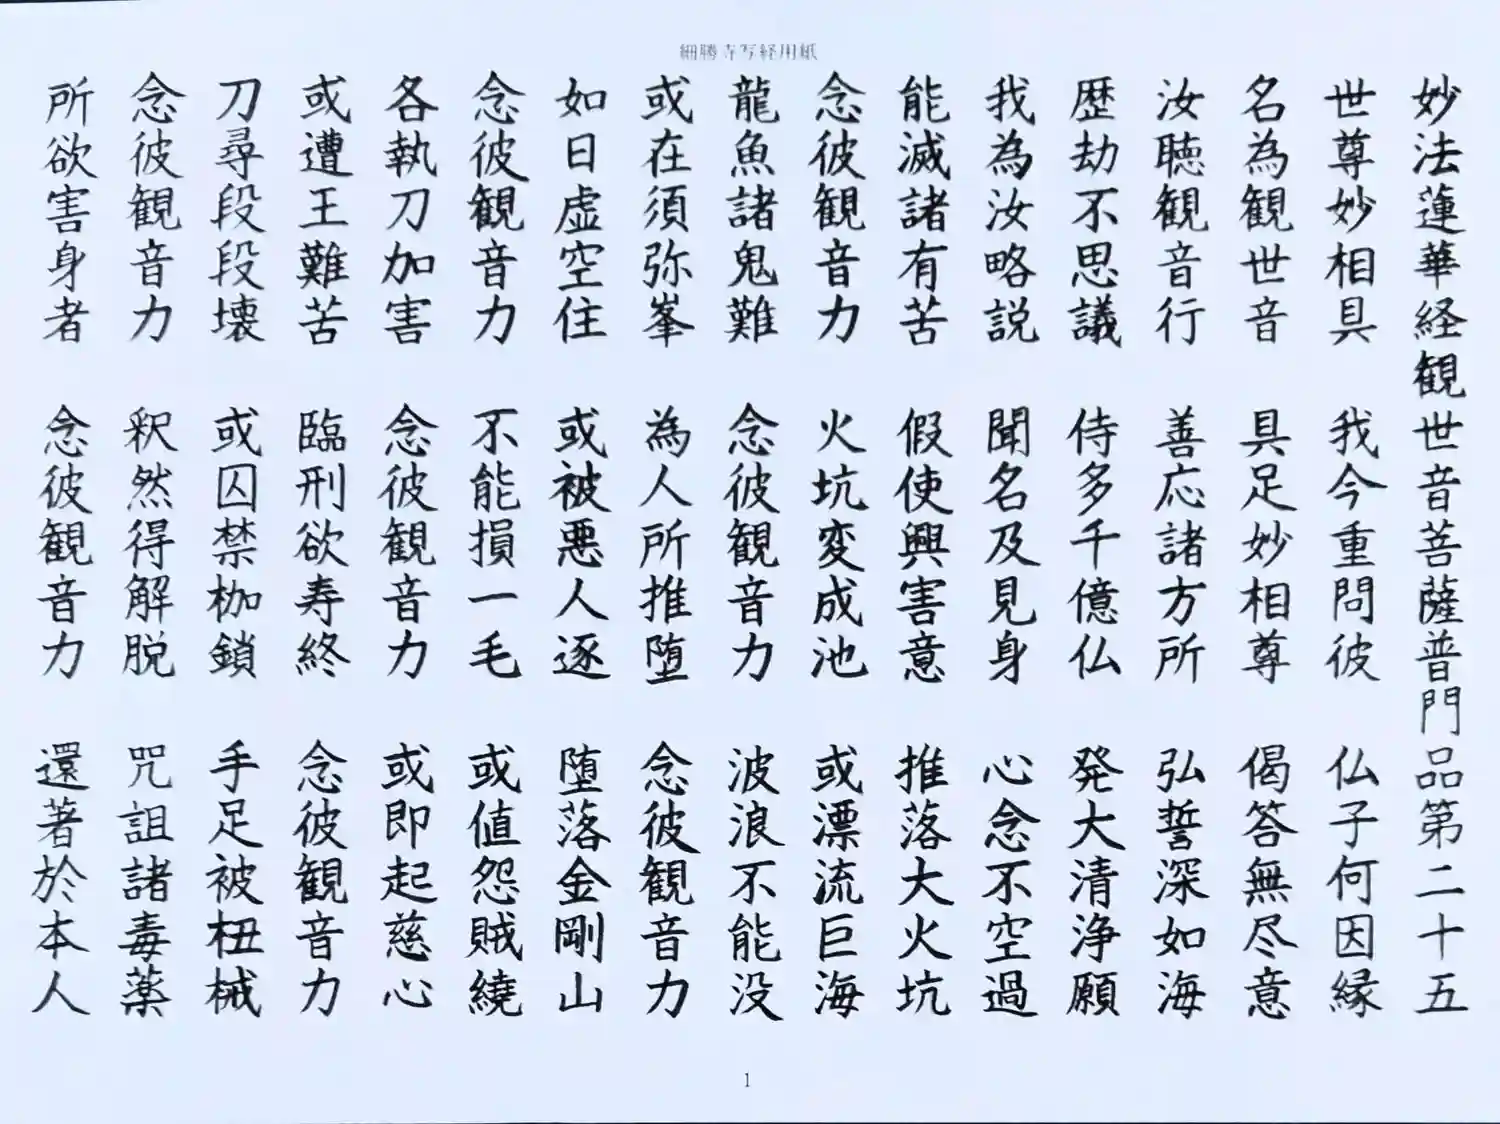 細勝寺写経用紙
妙法蓮華経観世音菩薩普門品第二十五
世尊妙相具 我今重問彼 仏子何因縁
名為観世音 具足妙相尊 偈答無尽意
汝聴観音行 善応諸方所 弘誓深如海
歴劫不思議 侍多千億仏 発大清浄願
我為汝略説 聞名及見身 心念不空過
能滅諸有苦 假使興害意 推落大火坑
念彼観音力 火坑変成池 或漂流巨海
龍魚諸鬼難 念彼観音力 波浪不能没
或在須弥峯 為人所推堕 念彼観音力
如日虚空住 或被悪人逐 堕落金剛山
念彼観音力 不能損一毛 或値怨賊繞
各執刀加害 念彼観音力 或即起慈心
或遭王難苦 臨刑欲寿終 念彼観音力
刀尋段段壊 或囚禁枷鎖 手足被杻械
念彼観音力 釈然得解脱 呪詛諸毒薬
所欲害身者 念彼観音力 還著於本人
1